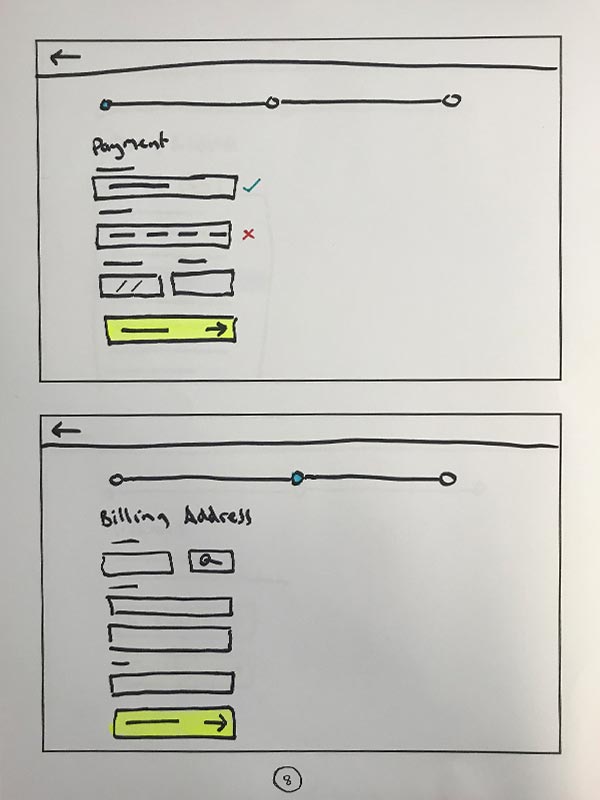 Payment
Billing Address
8